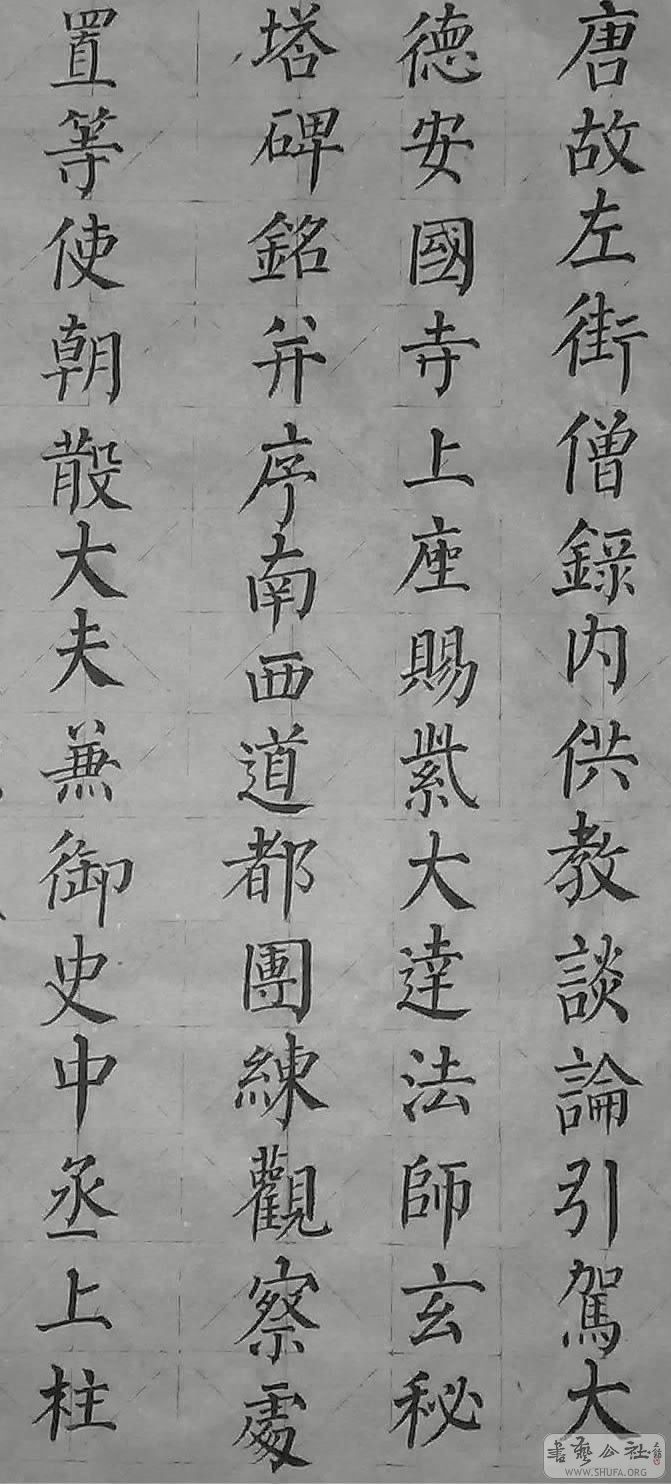 唐故左街僧錄内供教談論引駕大
德安國寺上座賜紫大達法師玄秘
塔碑銘并序南西道都團練觀察處
置等使朝散大夫兼御史中丞上柱
書藝公社
WWW.SHUFA.ORG